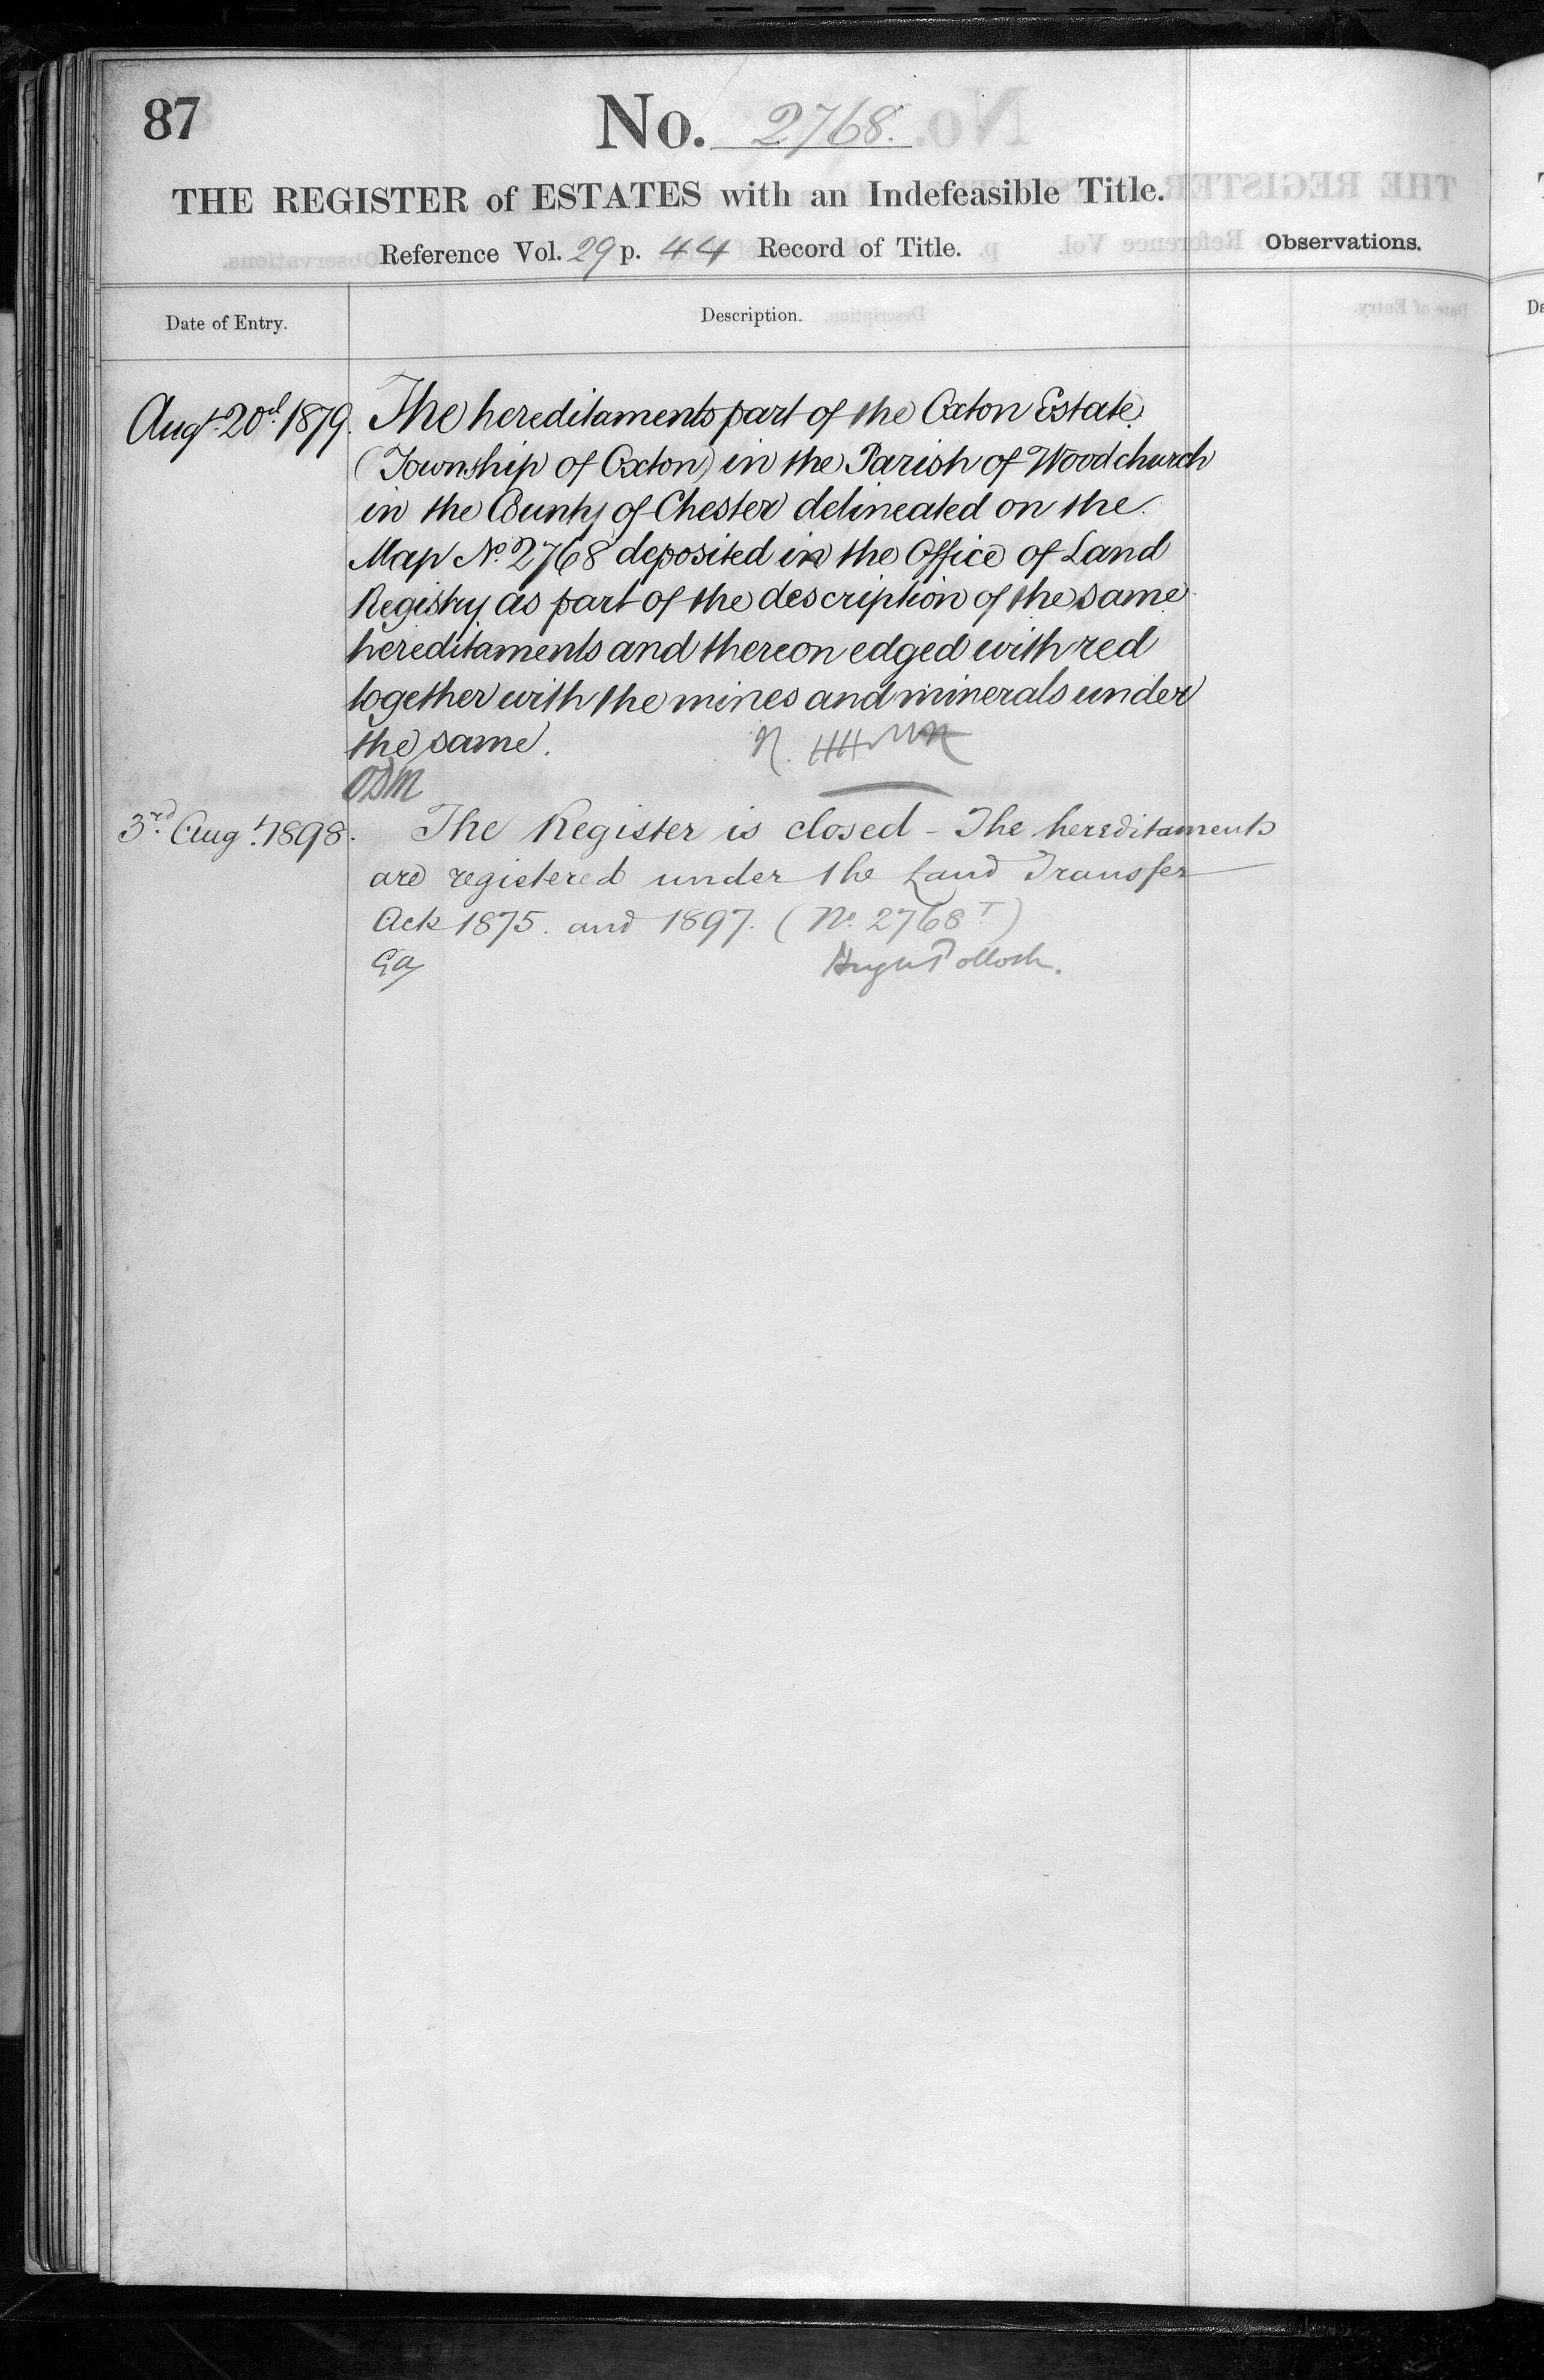 87
No. 2768.
THE REGISTER of ESTATES with an Indefeasible Title.
Reference Vol. 29 p. 44 Record of Title.
Observations.
Date of Entry.
Description.
Augt 20th 1879. The hereditaments part of the Oxton Estate
(Township of Oxton) in the Parish of Woodchurch
in the County of Chester delineated on the
Map No. 2768 deposited in the Office of Land
Registry as part of the description of the same
hereditaments and thereon edged with red
together with the mines and minerals under
the same.
3rd Augt. 1898. The Register is closed - The hereditaments
are registered under the Land Transfer
Acts 1875. and 1897. (No. 2768T)
Hugh Pollock.